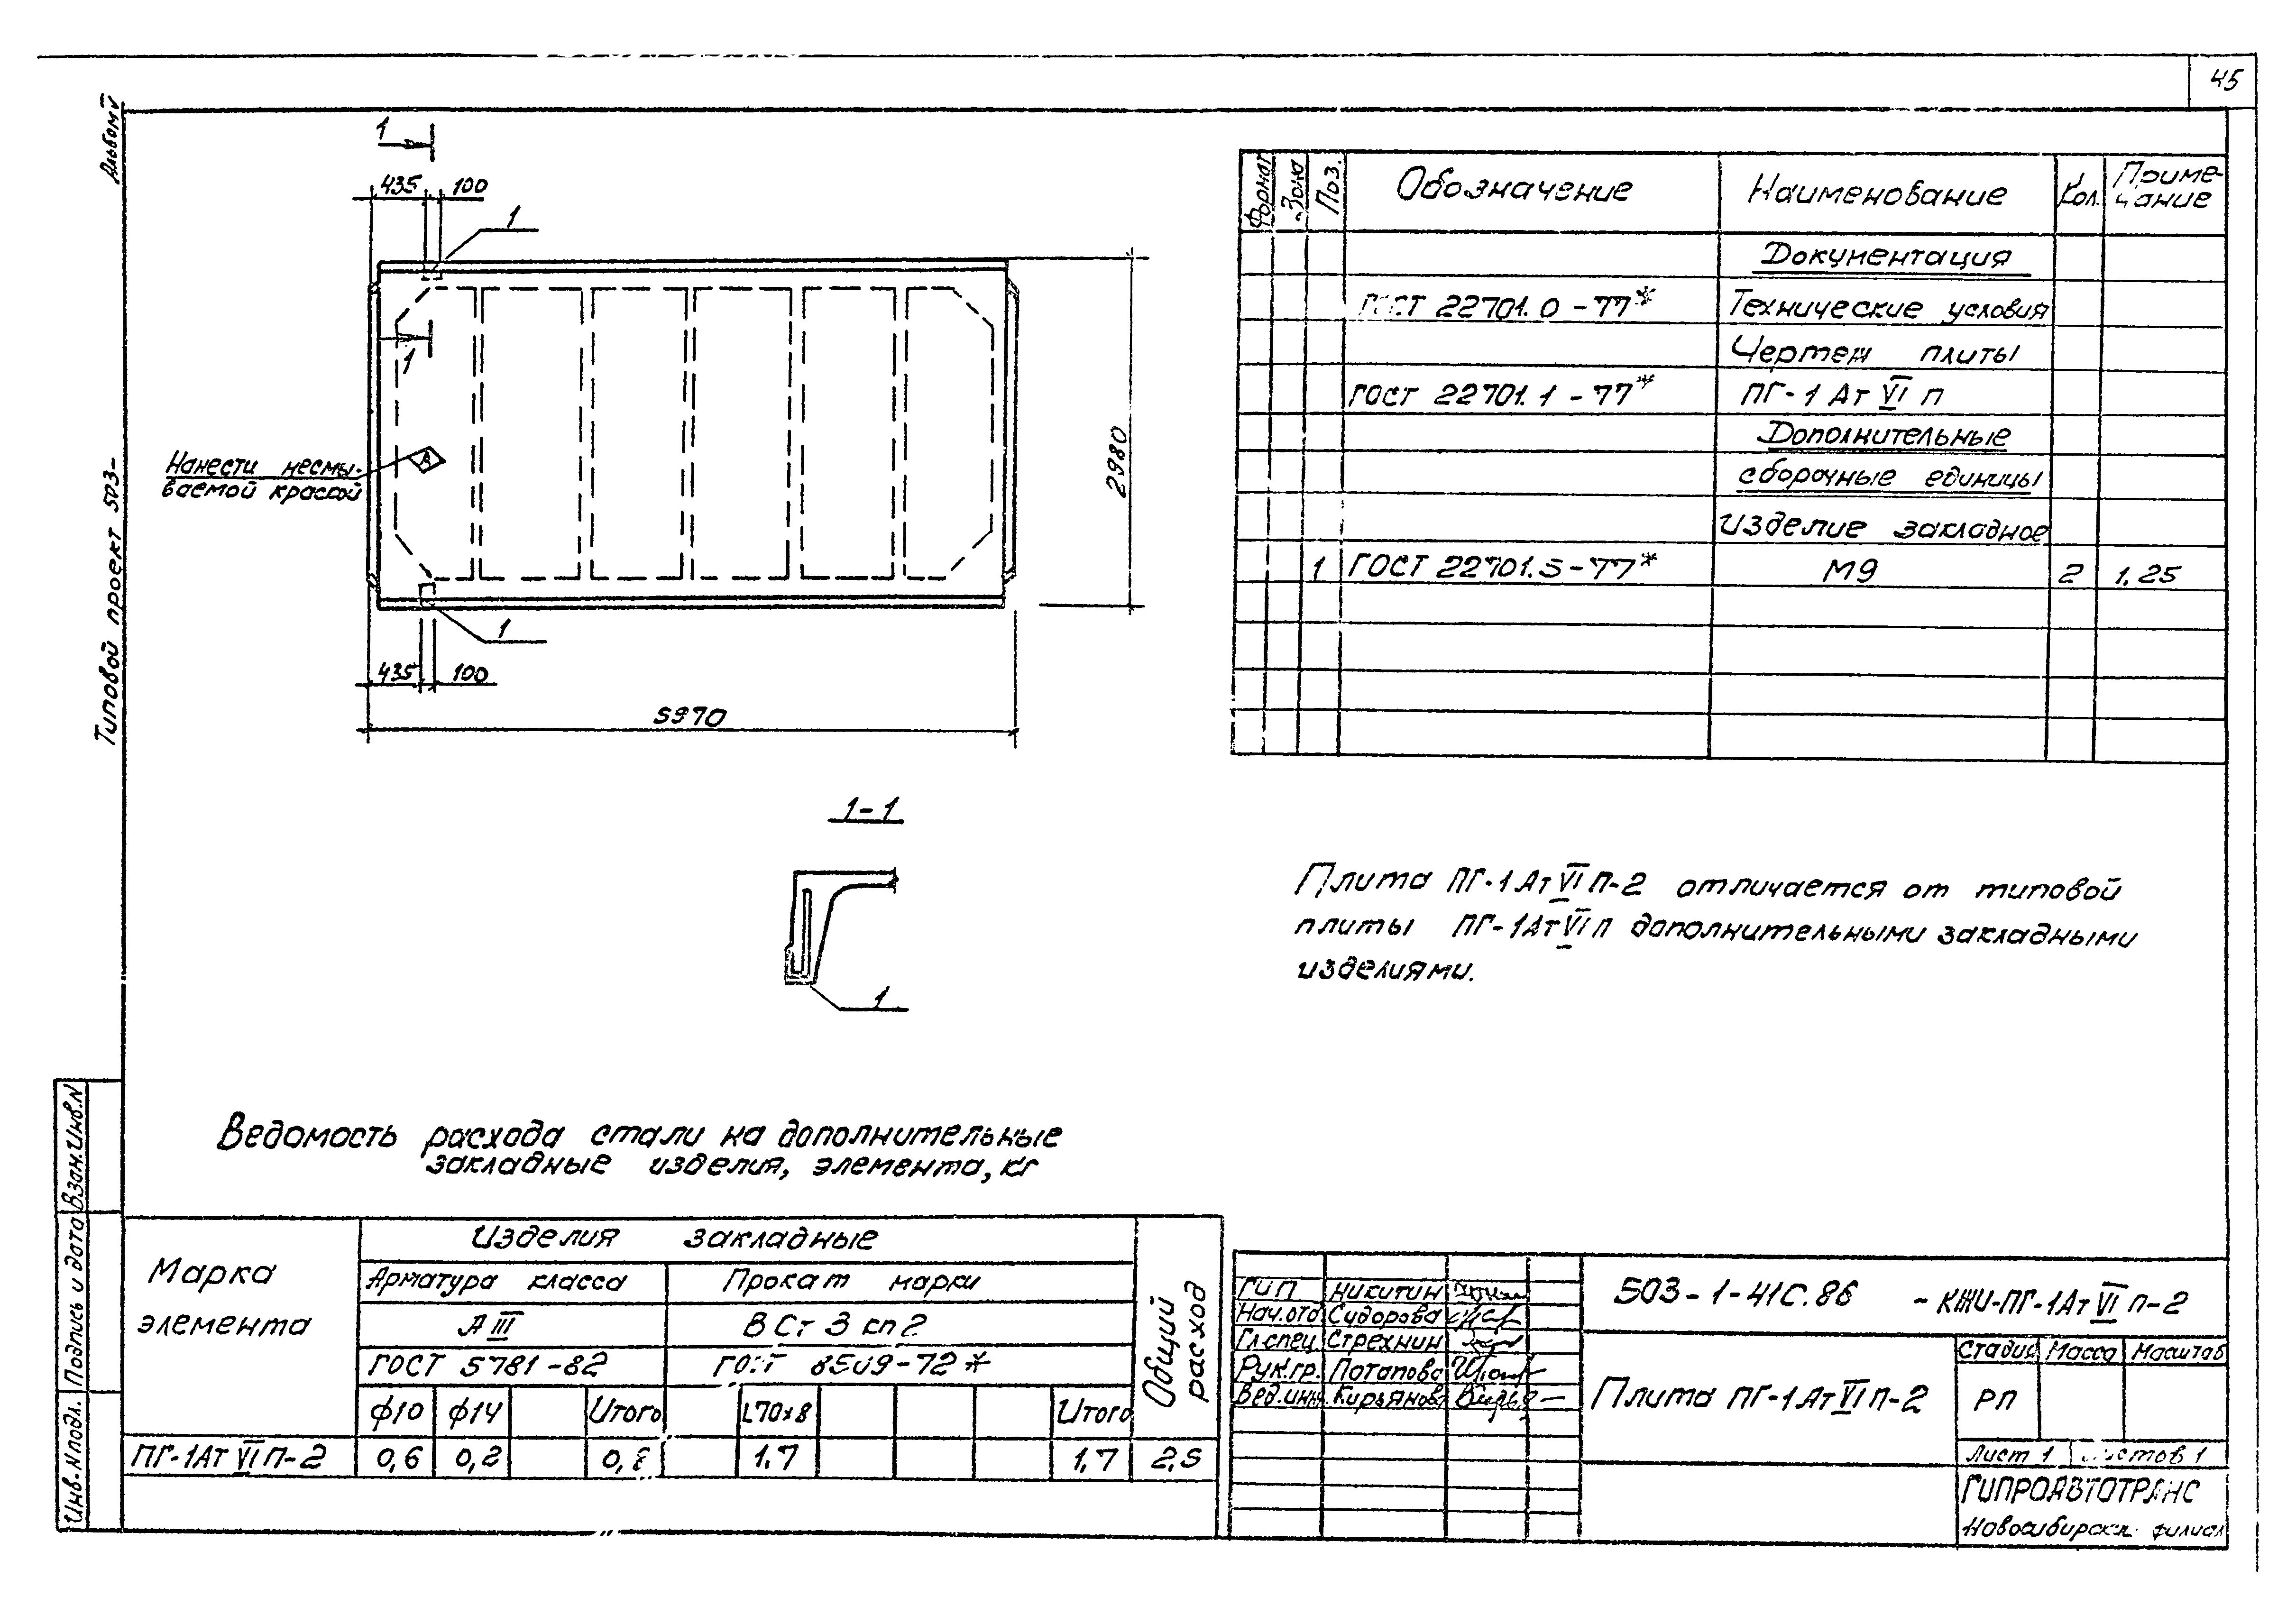 45
Альбом V
Типовой проект 503-
1
435 100
1
1
Нанести несмы-
ваемой краской
А
2980
1
435 100
5970
1-1
1
Формат Зона Поз. Обозначение Наименование Кол. Приме-
чание
Документация
ГОСТ 22701.0-77* Технические условия
Чертеж плиты
ГОСТ 22701.1-77* ПГ-1АтVIп
Дополнительные
сборочные единицы
Изделие закладное
1 ГОСТ 22701.5-77* М9 2 1,25
Плита ПГ-1АтVIП-2 отличается от типовой
плиты ПГ-1АтVIП дополнительными закладными
изделиями.
Ведомость расхода стали на дополнительные
закладные изделия, элемента, кг
Марка
элемента
Изделия закладные
Общий
расход
Арматура класса Прокат марки
АIII ВСт3кп2
ГОСТ 5781-82 ГОСТ 8509-72*
ф10 ф14 Итого L70x8 Итого
ПГ-1АтVIП-2 0,6 0,2 0,8 1,7 1,7 2,5
Инв.Nподл. Подпись и дата Взам.Инв.N
ГИП Никитин
Нач.отд Судорова
Гл.спец Стрехнин
Рук.гр. Потапова
Вед.инж. Кирьянова
503-1-41с.86 -КЖИ-ПГ-1АтVIП-2
Плита ПГ-1АтVIП-2
Стадия Масса Масштаб
РП
Лист 1 Листов 1
ГИПРОАВТОТРАНС
Новосибирск. филиал